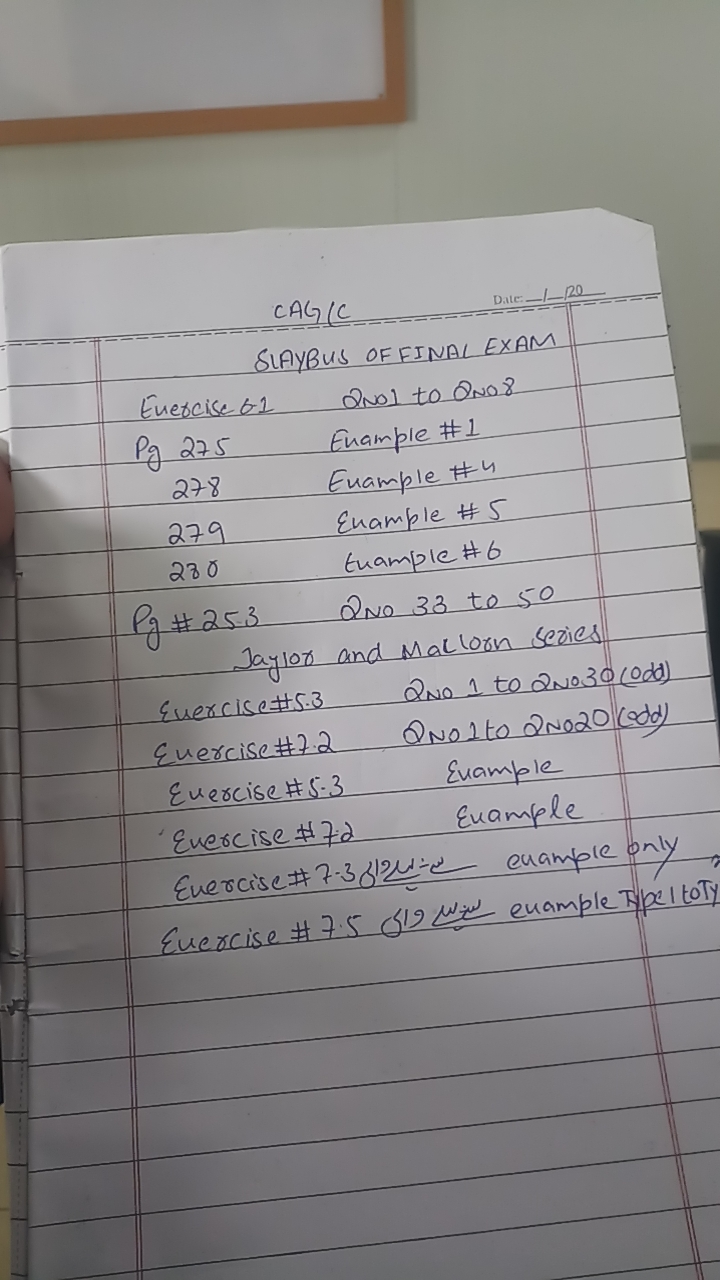 CAG/C
Date: __/__/20__
SLAYBUS OF FINAL EXAM
Exercise 6.1 QNo1 to QNo8
Pg 275 Example #1
278 Example #4
279 Example #5
280 Example #6
Pg # 253 QNo 33 to 50
Taylor and Maclorn series
Exercise#5.3 QNo 1 to QNo30(odd)
Exercise#7.2 QNo1to QNo20(odd)
Exercise#5.3 Example
Exercise#7.2 Example
Exercise#7.3 example only
Exercise #7.5 example Type1toTy